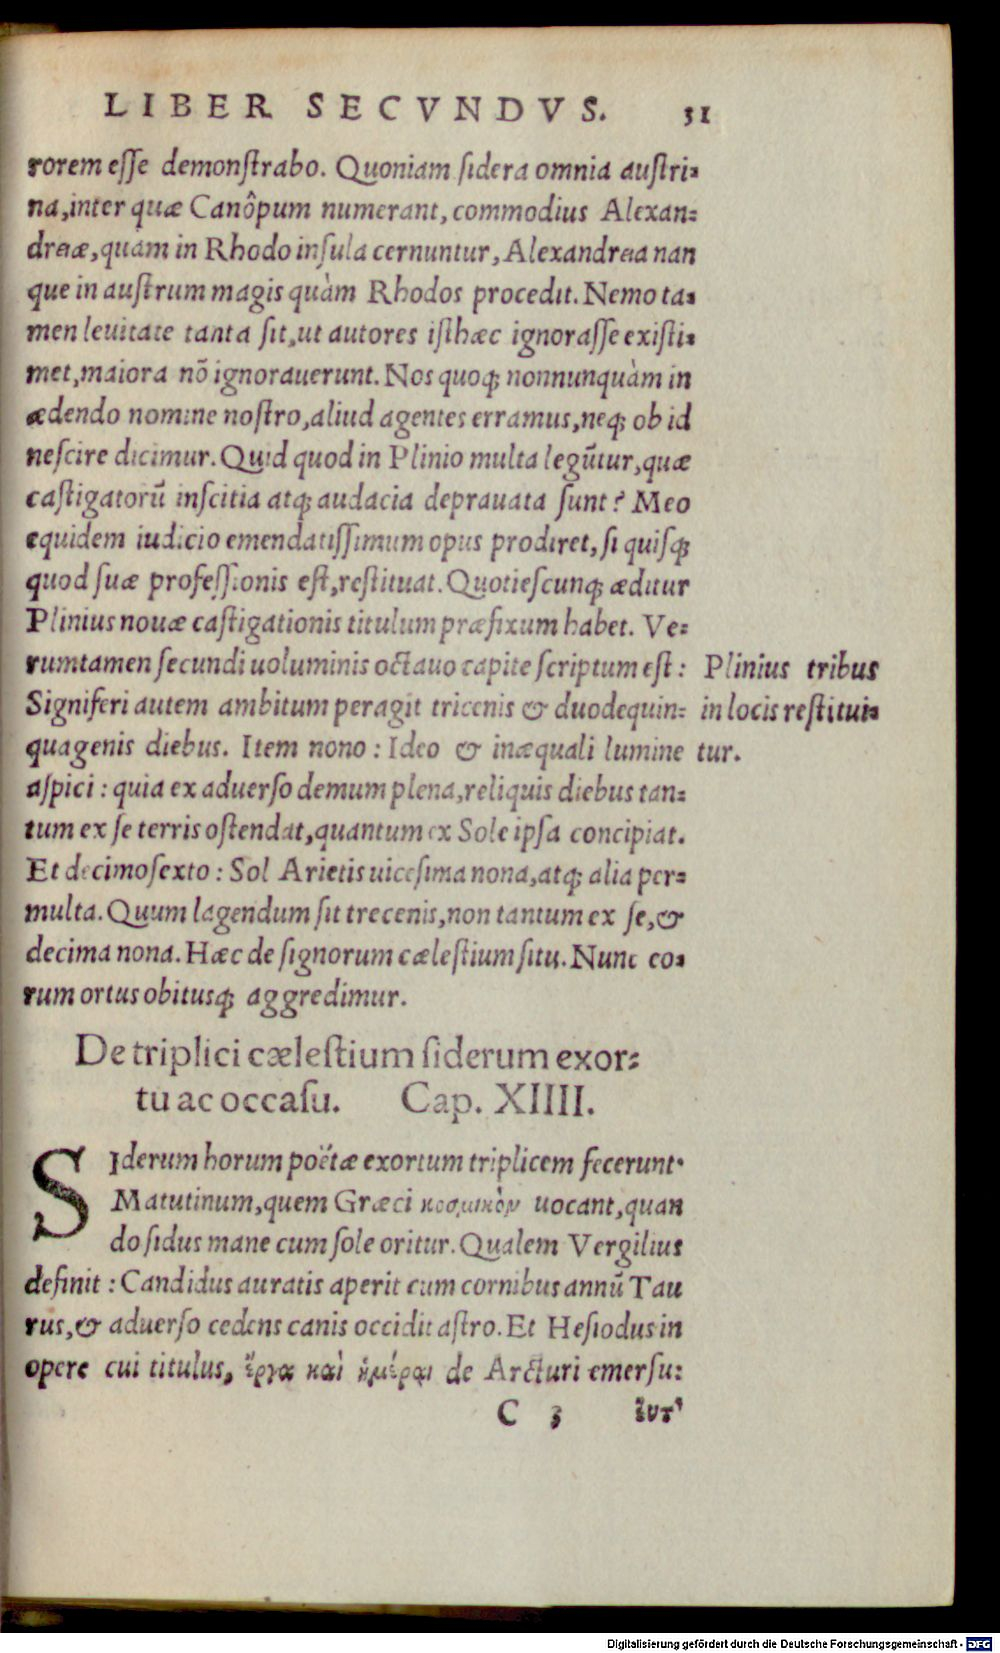 LIBER SECVNDVS. 31
rorem eſſe demonſtrabo. Quoniam ſidera omnia auſtri-
na, inter quæ Canôpum numerant, commodius Alexan-
dreiæ, quàm in Rhodo inſula cernuntur, Alexandreia nan
que in auſtrum magis quàm Rhodos procedit. Nemo ta-
men levitate tanta ſit, ut autores iſthæc ignoraſſe exiſti-
met, maiora nō ignorauerunt. Nos quoq; nonnunquàm in
ædendo nomine noſtro, aliud agentes erramus, neq; ob id
neſcire dicimur. Quid quod in Plinio multa legūtur, quæ
caſtigatorū inſcitia atq; audacia deprauata ſunt? Meo
equidem iudicio emendatiſſimum opus prodiret, ſi quiſq;
quod ſuæ profeſſionis eſt, reſtituat. Quotieſcunq; æditur
Plinius nouæ caſtigationis titulum præfixum habet. Ve-
rumtamen ſecundi uoluminis octauo capite ſcriptum eſt:
Signiferi autem ambitum peragit tricenis & duodequin-
quagenis diebus. Item nono: Ideo & inæquali lumine
aſpici: quia ex aduerſo demum plena, reliquis diebus tan-
tum ex ſe terris oſtendat, quantum ex Sole ipſa concipiat.
Et decimoſexto: Sol Arietis uiceſima nona, atq; alia per-
multa. Quum lagendum ſit trecenis, non tantum ex ſe, &
decima nona. Hæc de ſignorum cæleſtium ſitu. Nunc eo-
rum ortus obitusq; aggredimur.
Plinius tribus
in locis reſtitui-
tur.
De triplici cæleſtium ſiderum exor-
tu ac occaſu. Cap. XIIII.
SIderum horum poëtæ exortum triplicem fecerunt.
Matutinum, quem Græci κοσμικὸν uocant, quan
do ſidus mane cum ſole oritur. Qualem Vergilius
definit: Candidus auratis aperit cum cornibus annū Tau
rus, & aduerſo cedens canis occidit aſtro. Et Heſiodus in
opere cui titulus, ἔργα καὶ ἡμέραι de Arcturi emerſu:
C 3 εὖτ'
Digitalisierung gefördert durch die Deutsche Forschungsgemeinschaft - DFG